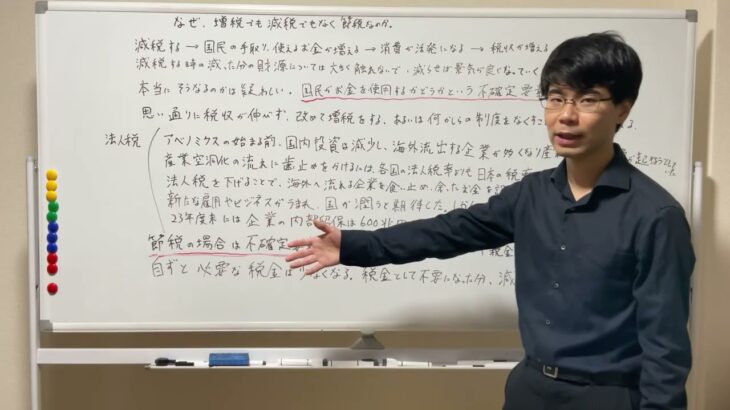 なぜ、増税でも減税でもなく節税なのか。
減税する → 国民の手取り、使えるお金が増える → 消費が活発になる → 税収が増える
減税する時の減った分の財源については大きく触れないで、減らせば景気が良くなっていく
本当にそうなるのかは疑わしい。国民がお金を使用するかどうかという不確定要
思い通りに税収が伸びず、改めて増税をする、あるいは何かしらの制度をなくす
法人税
アベノミクスの始まる前、国内投資は減少し、海外流出する企業が多くなり産業
産業空洞化の流れに歯止めをかけるには、各国の法人税率より日本の税
法人税を下げることで、海外へ流れる企業を食い止め、余ったお金を
新たな雇用やビジネスがうまれ、国が潤うと期待した。しかし
23年度末には企業の内部留保は600兆円
節税の場合は不確定要 税金
自ずと必要な税金は少なくなる。税金として不要になった分、減